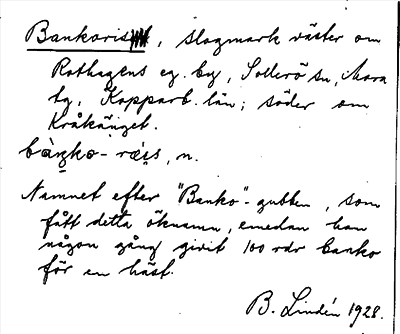 Bankoris, slogmark väster om
Rothagens eg. by, Sollerö sn, Mora
tg, Kopparb. län; söder om
Kråkänget.
bàŋko-ràɩs, n.
Namnet efter "Banko"-gubben, som
fått detta öknamn, emedan han
någon gång givit 100 rdr banko
för en häst.
B. Lindén 1928.